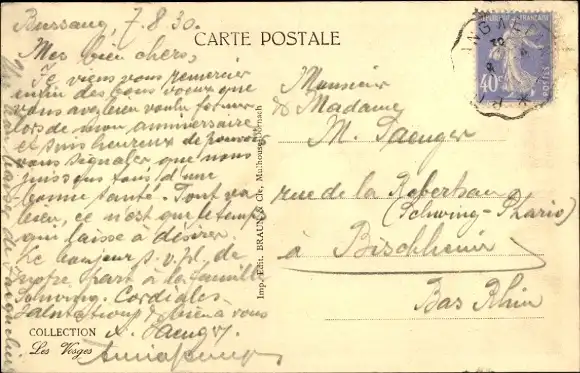 Bussang, 7.8.30.
CARTE POSTALE
Mes bien chers,
Je viens vous remercier
enfin des bons voeux que
vous avez bien voulu former
lors de mon anniversaire
et suis heureux de pouvoir
vous signaler que nous
jouissons tous d'une
bonne santé. Tout va
bien, ce n'est que le temps
qui laisse à désirer.
Le bonjour s.v.pl. de
notre part à la famille
Schwing. Cordiales
salutations
COLLECTION
Les Vosges
Imp. Edit. BRAUN & Cie, Mulhouse-Dornach
RÉPUBLIQUE FRANÇAISE
40c
POSTES
Monsieur
& Madame
M. Saenger
rue de la Robertsau
(Schwing-Pharis)
à Bischheim
Bas Rhin